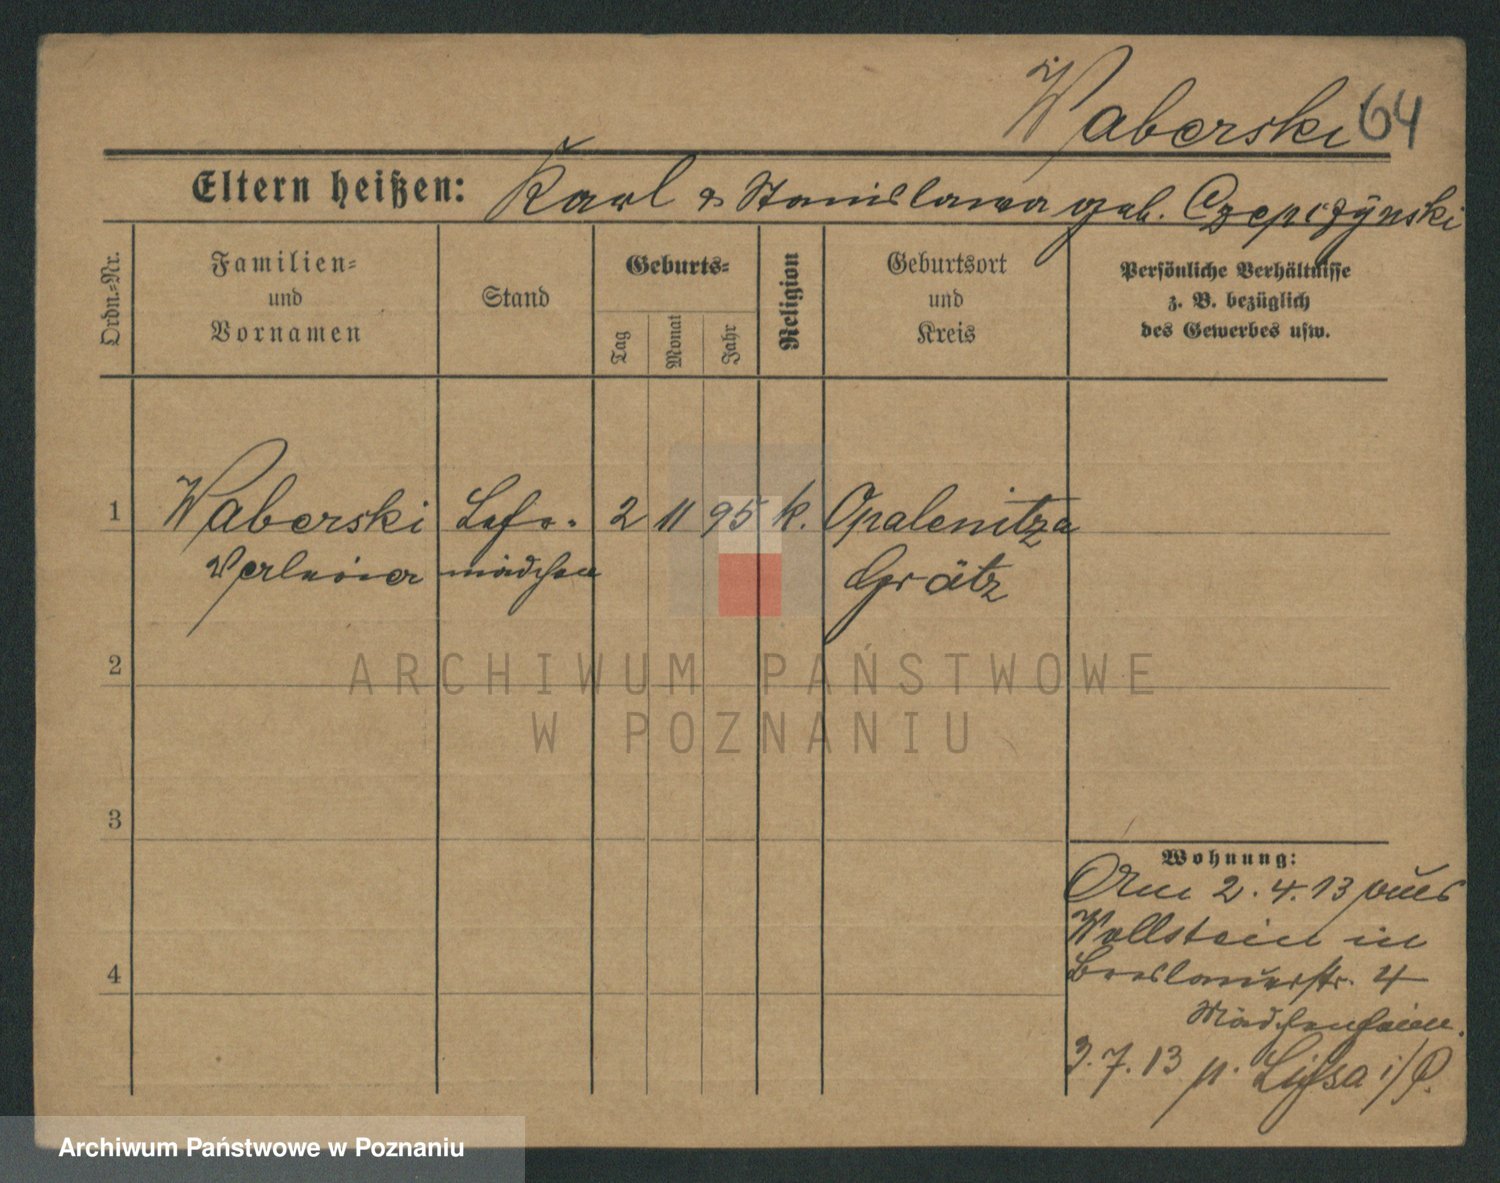 Waberski 64
Eltern heißen: Karl & Stanislawa geb. Czepczynski
Ordn.-Nr.
Familien-
und
Vornamen
Stand
Geburts-
Tag
Monat
Jahr
Religion
Geburtsort
und
Kreis
Persönliche Verhältnisse
z. B. bezüglich
des Gewerbes usw.
1 Waberski 2 11 95 k. Opalenitza
mädchen Grätz
2
ARCHIWUM PAŃSTWOWE
W POZNANIU
3
Wohnung:
Am 2.4.13 aus
Wollstein in
Breslauerstr. 4
Mädchenheim.
3.7.13 n. Lissa i/P.
4
Archiwum Państwowe w Poznaniu